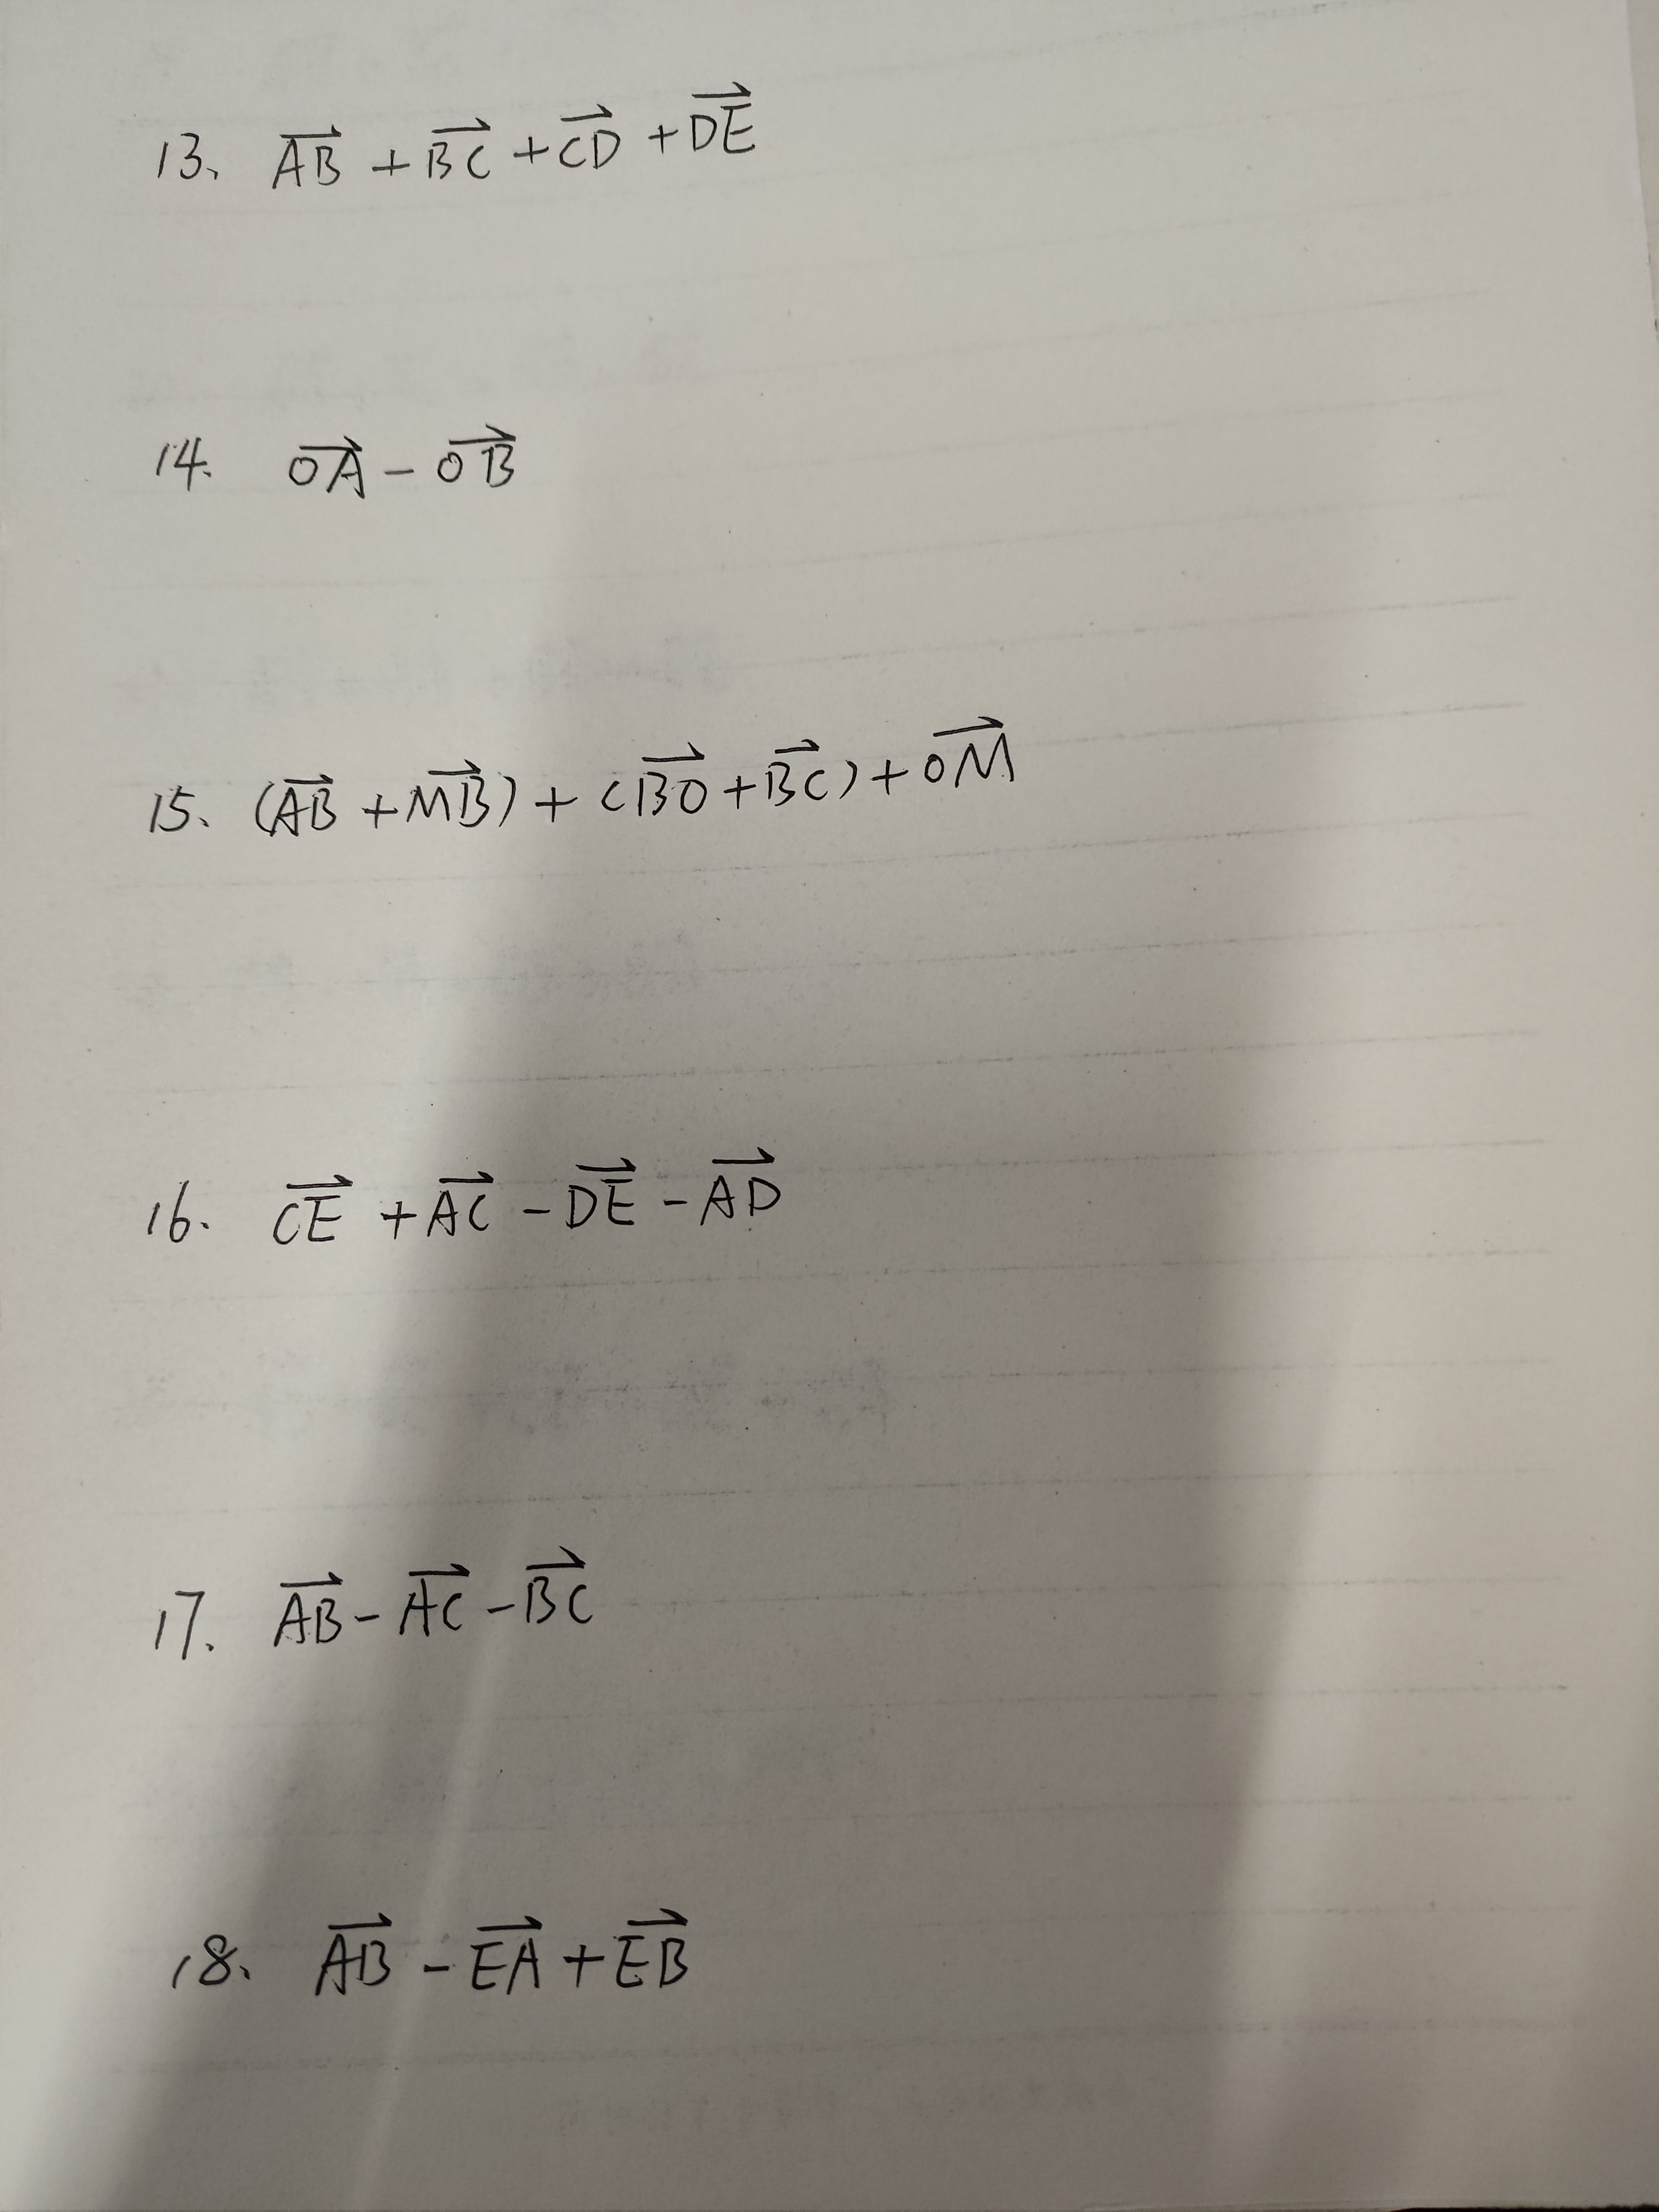 13、 $\overrightarrow{AB} + \overrightarrow{BC} + \overrightarrow{CD} + \overrightarrow{DE}$
14. $\overrightarrow{OA} - \overrightarrow{OB}$
15、 $(\overrightarrow{AB} + \overrightarrow{MB}) + (\overrightarrow{BO} + \overrightarrow{BC}) + \overrightarrow{OM}$
16. $\overrightarrow{CE} + \overrightarrow{AC} - \overrightarrow{DE} - \overrightarrow{AD}$
17. $\overrightarrow{AB} - \overrightarrow{AC} - \overrightarrow{BC}$
18、 $\overrightarrow{AB} - \overrightarrow{EA} + \overrightarrow{EB}$